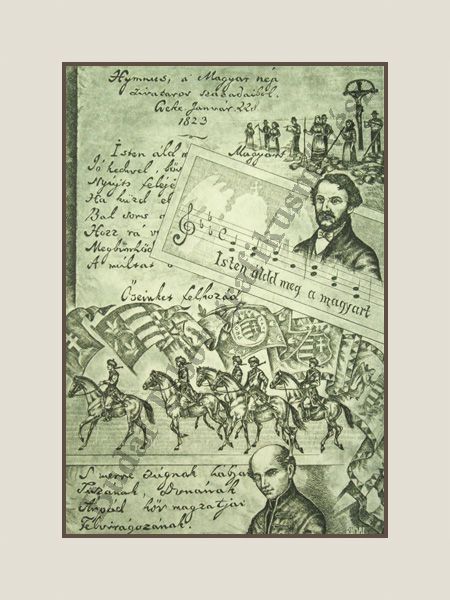 Hymnus, a' Magyar nép
zivataros századaiból.
Cseke Január. 22d
1823
Isten áld m
Magyart
Jó kedvvel, bős
Nyújts feléje
Ha küzd el
Bal sors a
Hozz rá v
Megbűnhöd
A múltat
Isten áldd meg a magyart
Őseinket felhozád
S merre zúgnak habjai
Tiszának, Dunának
Árpád hős magzatjai
Felvirágozának.